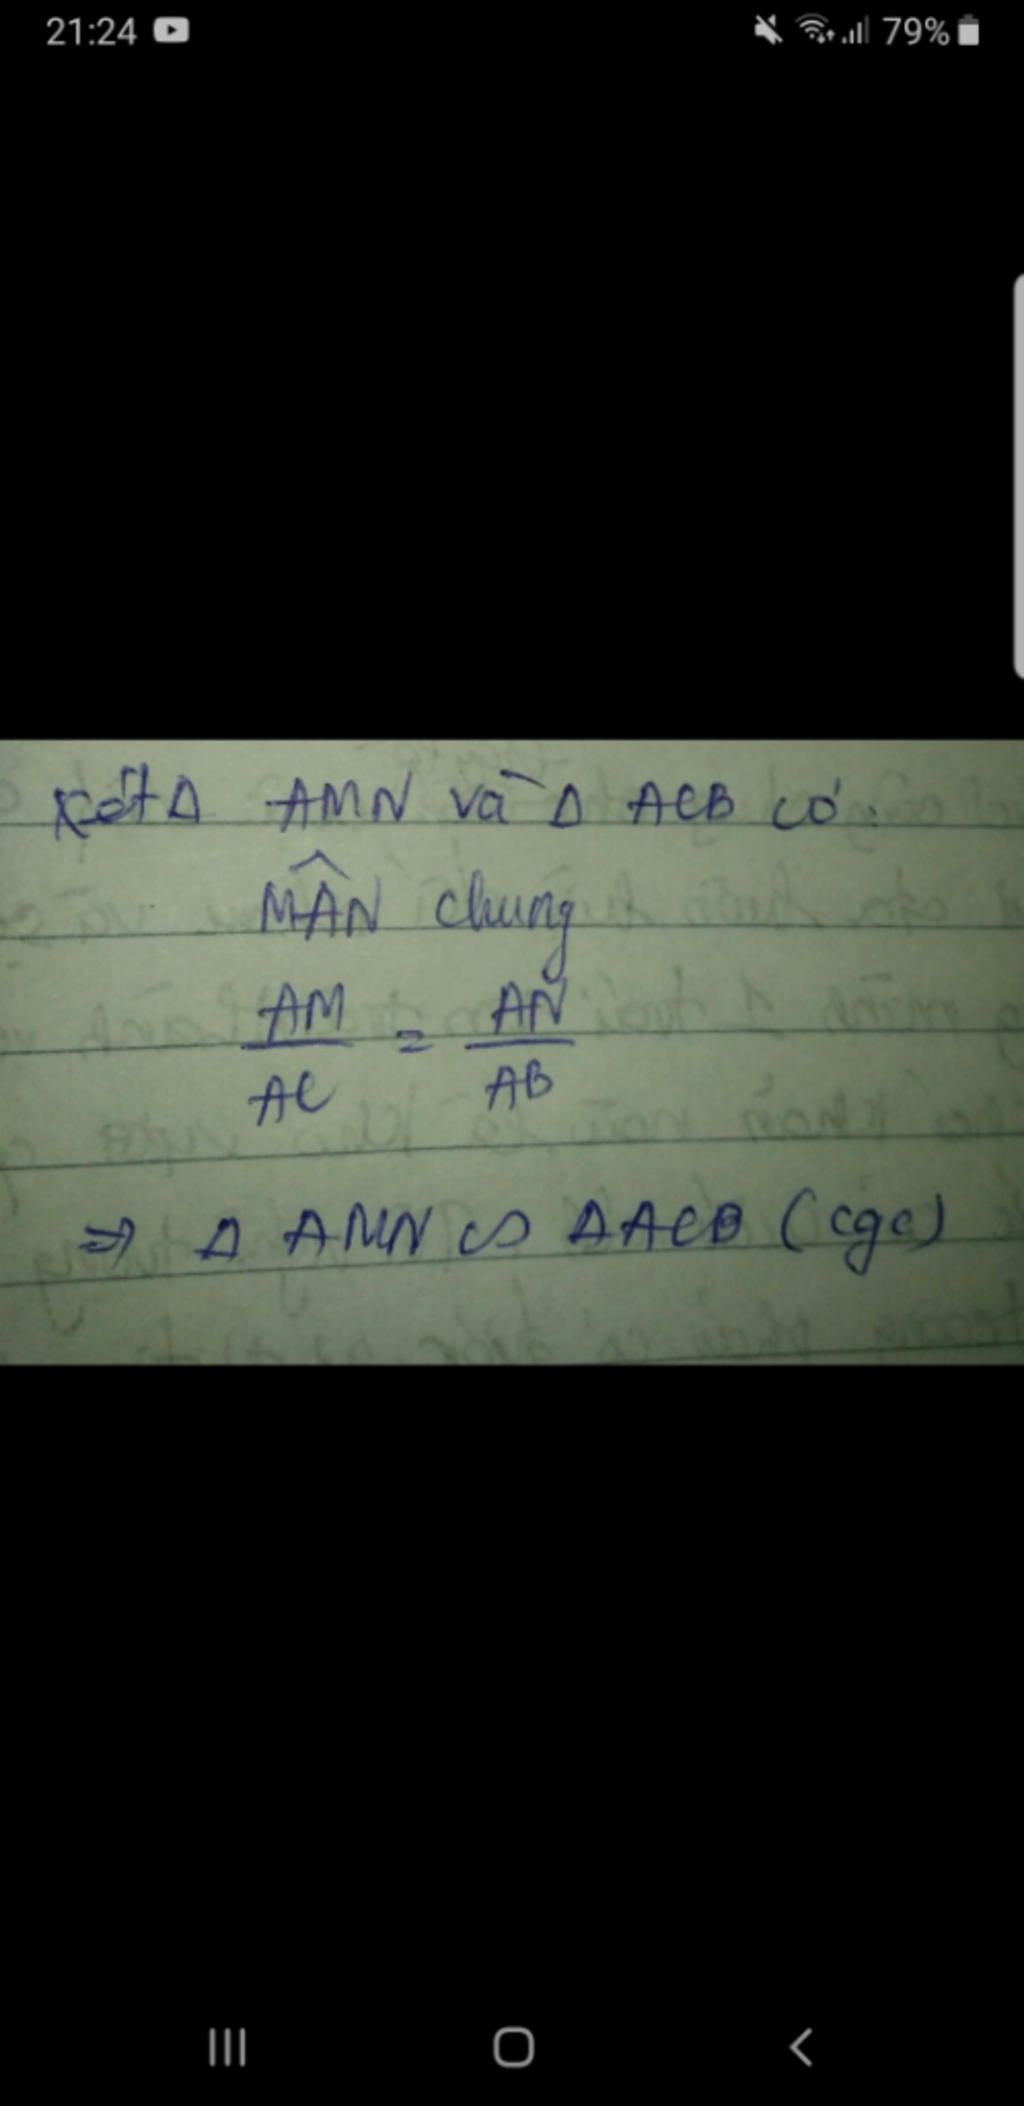 21:24 79%
Xét Δ AMN và Δ ACB có:
MÂN chung
AM/AC = AN/AB
⇒ Δ AMN ∽ ΔACB (cgc)